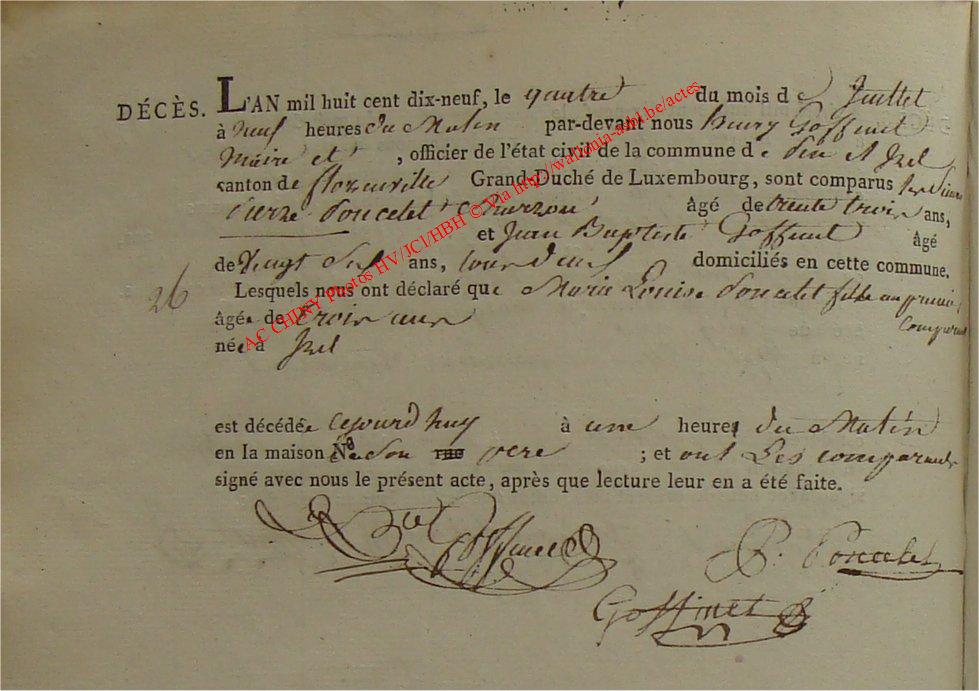 DÉCÈS. L'AN mil huit cent dix-neuf, le quatre du mois de Juillet
à neuf heures du Matin par-devant nous henry Goffinet
Maire et , officier de l'état civil de la commune de Pin et Izel
canton de florenville Grand-Duché de Luxembourg, sont comparus les Sieurs
Pierre Poncelet âgé de trente trois ans,
et Jean Baptiste Goffinet âgé
de vingt ans, domiciliés en cette commune.
26 Lesquels nous ont déclaré que Marie Louise Poncelet fille au premier
comparant
âgée de trois ans
née à Izel
est décédée cejourd'huy à une heure du Matin
en la maison de son rue pere ; et ont Les comparants
signé avec nous le présent acte, après que lecture leur en a été faite.
Goffinet P. Poncelet
Goffinet
AC CHINY Photos HV/JCI/HBH © Via http://wallonia-asbl.be/actes